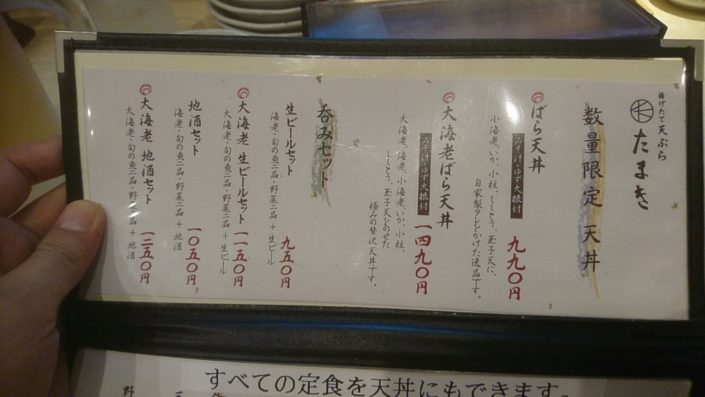 揚げたて天ぷら
たまき
数量限定 天丼
ばら天丼
みそ汁・ゆず大根付
九九〇円
小海老、いか、小柱、ししとう、玉子天に、
自家製タレをかけた逸品です。
大海老ばら天丼
みそ汁・ゆず大根付
一四九〇円
大海老、海老、小海老、いか、小柱、
ししとう、玉子天をのせた
極みの贅沢天丼です。
呑みセット
生ビールセット
九五〇円
海老・旬の魚二品・野菜二品+生ビール
大海老 生ビールセット
一一五〇円
大海老・旬の魚二品・野菜二品+生ビール
地酒セット
一〇五〇円
海老・旬の魚二品・野菜二品+地酒
大海老 地酒セット
一二五〇円
大海老・旬の魚二品・野菜二品+地酒
すべての定食を天丼にもできます。